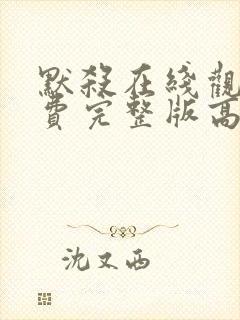 默殺在綫觀
費完整版高
沈又西